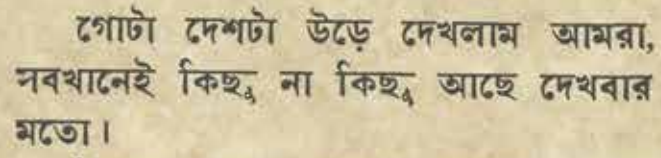 গোটা দেশটা উড়ে দেখলাম আমরা,
সবখানেই কিছু না কিছু আছে দেখবার
মতো।